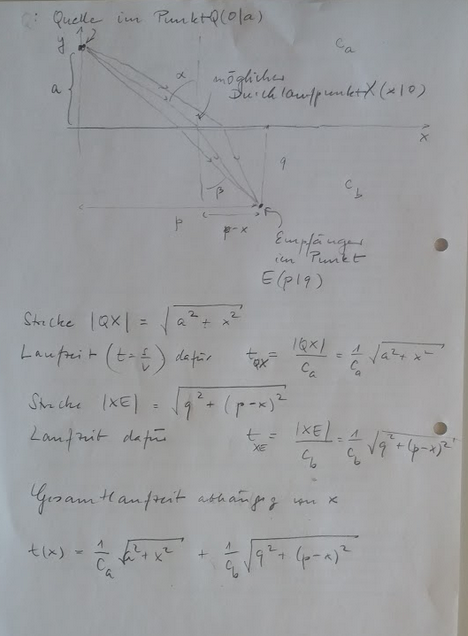 Q: Quelle im Punkt Q(0|a)
y
C_a
α
möglicher
Durchlaufpunkt X (x|0)
a
x
q
β
C_b
p
p-x
Empfänger
im Punkt
E(p|q)
Strecke |QX| = √(a² + x²)
Laufzeit (t = s/v) dafür t_QX = |QX|/C_a = 1/C_a √(a² + x²)
Strecke |XE| = √(q² + (p-x)²)
Laufzeit dafür t_XE = |XE|/C_b = 1/C_b √(q² + (p-x)²)
Gesamtlaufzeit abhängig von x
t(x) = 1/C_a √(a² + x²) + 1/C_b √(q² + (p-x)²)